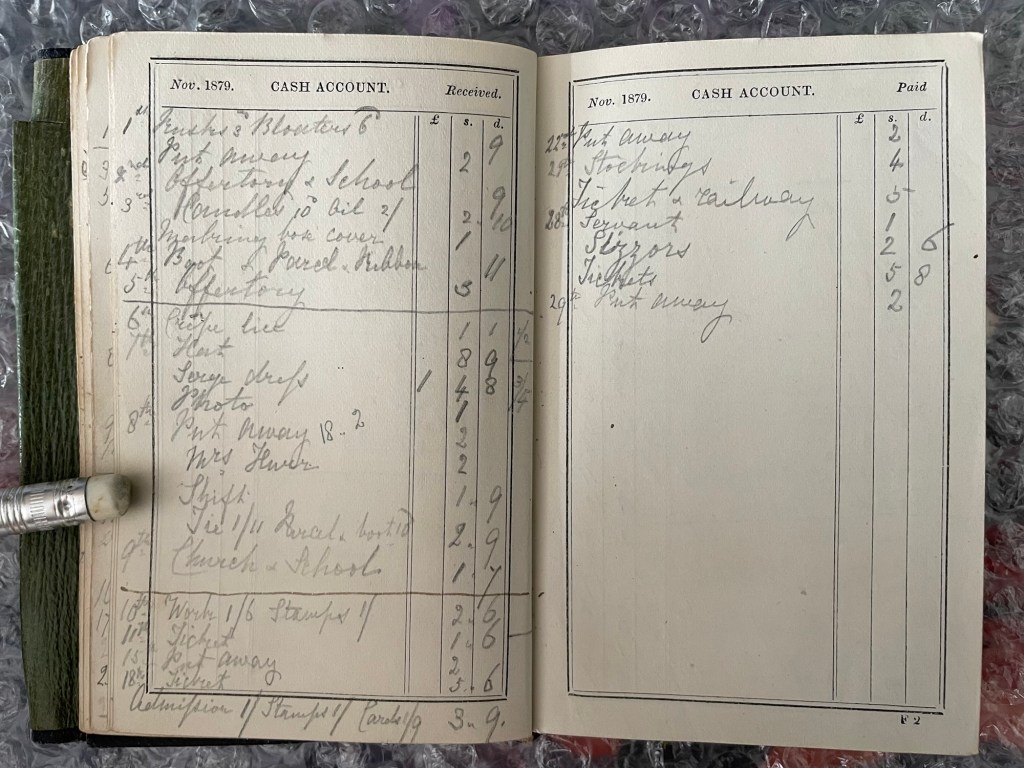 Nov. 1879. CASH ACCOUNT. Received.
£ s. d.
1st Rusks 3 Bloaters 6 9
Put away 2
2nd Offertory & School 9
3rd Candles 10 Oil 2/ 2 10
Marking box cover 1
4th Boot & Parcel & Ribbon 11
5th Offertory 3
6th Crêpe 1 1
7th Hat 8 9
Serge dress 1 4 8
Photo 1
8th Put away 18-2 2
Mrs 2
Shift 1 9
Tie 1/11 Parcel & 10 2 9
9th Church & School 1 7
10th Work 1/6 Stamps 1/ 2 6
11th Ticket 1 6
15 Put away 2
18th Ticket 5 6
Admission 1/ Stamps 1/ Cards 1/9 3 9
Nov. 1879. CASH ACCOUNT. Paid
£ s. d.
22nd Put away 2
Stockings 4
Ticket & railway 5
28th Servant 1
Sizzors 2 6
Tickets 5 8
29th Put away 2
F 2